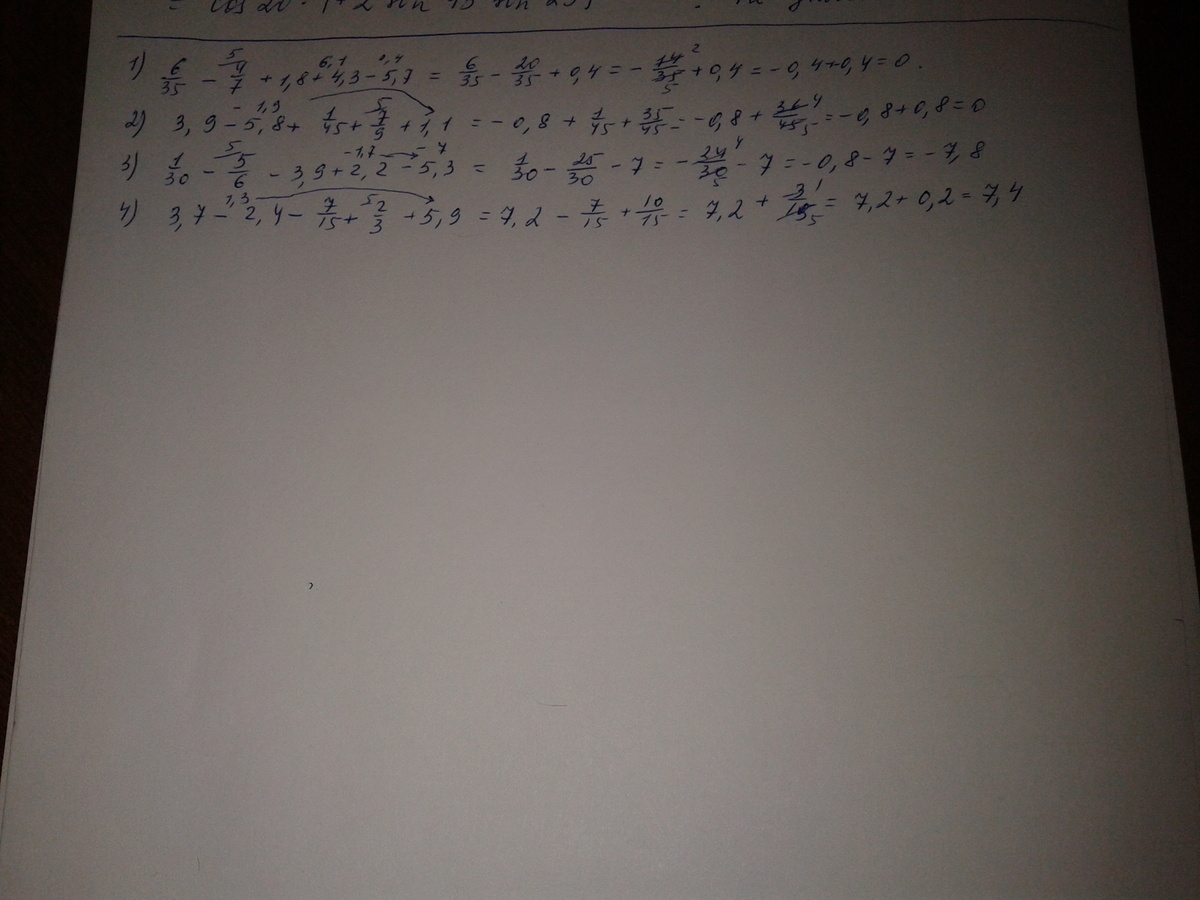 = cos 20
1) 6/35 - 4/7 + 1,8 + 4,3 - 5,7 = 6/35 - 20/35 + 0,4 = - 14/35 + 0,4 = -0,4 + 0,4 = 0.
2) 3,9 - 5,8 + 1/45 + 7/9 + 1,1 = -0,8 + 1/45 + 35/45 = -0,8 + 36/45 = -0,8 + 0,8 = 0
3) 1/30 - 5/6 - 3,9 + 2,2 - 5,3 = 1/30 - 25/30 - 7 = - 24/30 - 7 = -0,8 - 7 = -7,8
4) 3,7 - 2,4 - 7/15 + 2/3 + 5,9 = 7,2 - 7/15 + 10/15 = 7,2 + 3/15 = 7,2 + 0,2 = 7,4